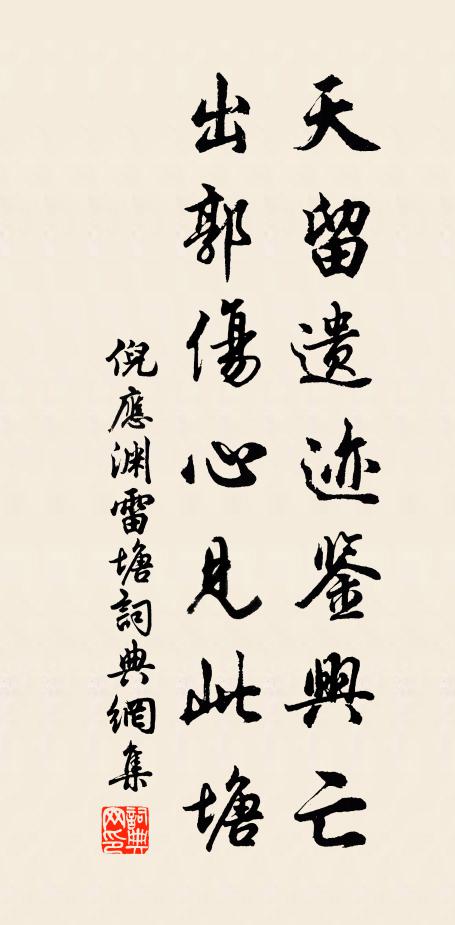 天留遺迹鉴興亡
出郭傷心見此塘
倪應渊雷塘詞典網集
詞典网印